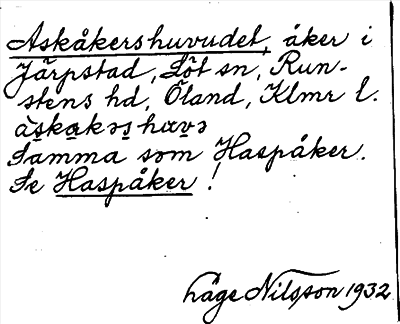 Askåkershuvudet, åker i
Järpstad, Löt sn, Run-
stens hd, Öland, Klmr l.
àskakəshʉvə
Samma som Haspåker.
Se Haspåker!
håge Nilsson 1932